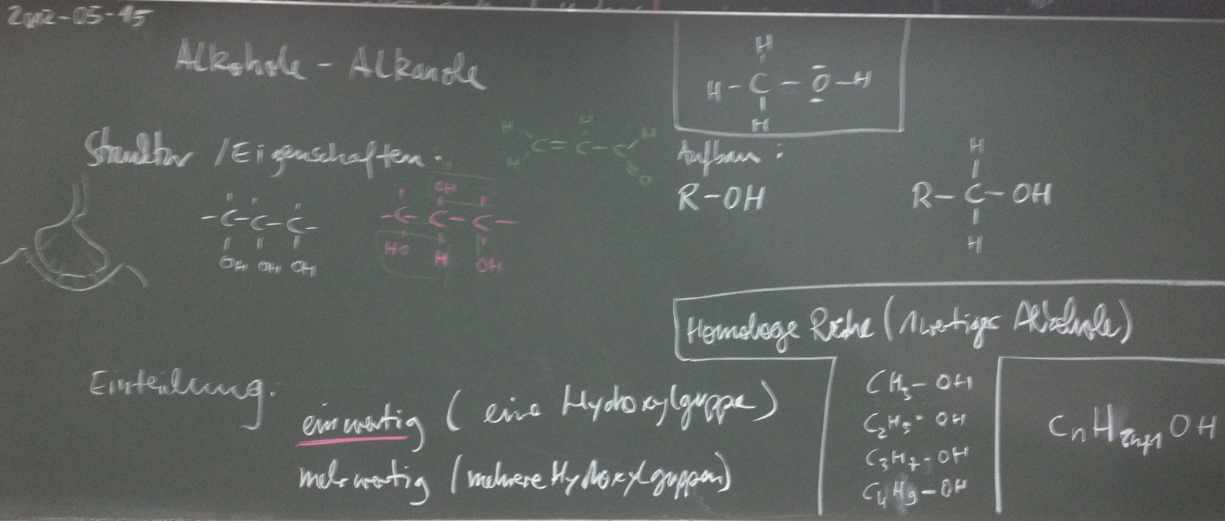 2012-05-15
Alkohole - Alkanole
Struktur / Eigenschaften:
H
H - C - O - H
H
H H H
C = C - C
H O
- C - C - C -
OH OH OH
OH
- C - C - C -
HO H OH
Aufbau:
R - OH
H
R - C - OH
H
Homologe Reihe (1wertiger Alkohole)
CH3 - OH
C2H5 - OH
C3H7 - OH
C4H9 - OH
CnH2n+1OH
Einteilung:
einwertig (eine Hydroxylgruppe)
mehrwertig (mehrere Hydroxylgruppen)